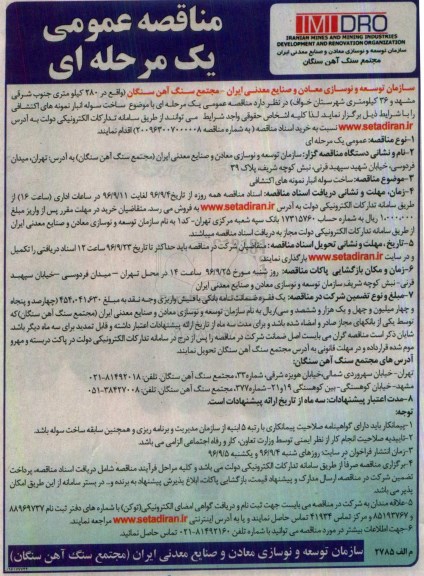 مناقصه عمومی
یک مرحله ای
IMIDRO
IRANIAN MINES AND MINING INDUSTRIES
DEVELOPMENT AND RENOVATION ORGANIZATION
سازمان توسعه و نوسازی معادن و صنایع معدنی ایران
مجتمع سنگ آهن سنگان
سازمان توسعه و نوسازی معادن و صنایع معدنی ایران - مجتمع سنگ آهن سنگان (واقع در ۲۸۰ کیلومتری جنوب شرقی
مشهد و ۳۶ کیلومتری شهرستان خواف) در نظر دارد مناقصه عمومی یک مرحله ای با موضوع ساخت سوله انبار نمونه های اکتشافی
را با شرایط ذیل برگزار نماید. لذا کلیه اشخاص حقوقی واجد شرایط می توانند از طریق سامانه تدارکات الکترونیکی دولت به آدرس
www.setadiran.ir نسبت به خرید اسناد مناقصه (به شماره مناقصه ۲۰۰۹۶۳۰۰۷۰۰۰۰۰۸) اقدام نمایند.
۱-نوع مناقصه: عمومی یک مرحله ای
۲-نام و نشانی دستگاه مناقصه گزار: سازمان توسعه و نوسازی معادن و صنایع معدنی ایران (مجتمع سنگ آهن سنگان) به آدرس: تهران، میدان
فردوسی، خیابان شهید سپهبد قرنی، نبش کوچه شریف، پلاک ۳۹
۳-موضوع مناقصه: ساخت سوله انبار نمونه های اکتشافی
۴-زمان، مهلت و نشانی دریافت اسناد مناقصه: اسناد مناقصه همه روزه از تاریخ ۹۶/۹/۴ لغایت ۹۶/۹/۱۱ در ساعات اداری (ساعت ۱۶) از
طریق سامانه تدارکات الکترونیکی دولت به آدرس www.setadiran.ir به فروش می رسد. متقاضیان خرید در مهلت مقرر پس از واریز مبلغ
۱.۰۰۰.۰۰۰ ریال به شماره حساب ۱۷۳۱۵۷۶۰ بانک سپه شعبه مرکزی تهران-کد۱ به نام سازمان توسعه و نوسازی معادن و صنایع معدنی ایران
از طریق سامانه تدارکات الکترونیکی دولت مجاز به دریافت اسناد مناقصه میباشند
۵-تاریخ، مهلت و نشانی تحویل اسناد مناقصه: متقاضیان شرکت در مناقصه باید حداکثر تا تاریخ ۹۶/۹/۲۳ ساعت ۱۲ اسناد دریافتی را تکمیل
و در سایت www.setadiran.ir بارگذاری نمایند.
۶-زمان و مکان بازگشایی پاکات مناقصه: روز شنبه مورخ ۹۶/۹/۲۵ ساعت ۱۴ در محل تهران - میدان فردوسی -خیابان سپهبد
قرنی- نبش کوچه شریف سازمان توسعه و نوسازی معادن و صنایع معدنی ایران
۷-مبلغ و نوع تضمین شرکت در مناقصه: یک فقره ضمانت نامه بانکی یا فیش واریزی وجه نقد به مبلغ ۴۵۴.۰۴۱.۶۳۰ (چهارصد و پنجاه
و چهار میلیون و چهل و یک هزار و ششصد و سی) ریال به نام سازمان توسعه و نوسازی معادن و صنایع معدنی ایران (مجتمع سنگ آهن سنگان) که
توسط یکی از بانکهای مجاز صادر و امضاء شده باشد و برای مدت سه ماه از تاریخ ارائه پیشنهادات اعتبار داشته و قابل تمدید برای سه ماه دیگر باشد.
شایان ذکر است مناقصه گران می بایست اصل ضمانت شرکت در مناقصه را پس از درج در سامانه تدارکات الکترونیکی دولت در پاکت دربسته و مهر و
موم شده قرارداده و در مهلت قانونی به آدرس مجتمع سنگ آهن سنگان تحویل نمایند.
آدرس های مجتمع سنگ آهن سنگان:
تهران- خیابان سهروردی شمالی-خیابان هویزه شرقی- شماره۲۲، مجتمع سنگ آهن سنگان، تلفن: ۸۱۴۹۲۰۱۸-۰۲۱
مشهد- خیابان کوهسنگی- بین کوهسنگی ۱۹و۲۱- شماره۳۷۷، مجتمع سنگ آهن سنگان تلفن: ۳۸۴۲۷۰۰۸-۰۵۱
۸-مدت اعتبار پیشنهادات: سه ماه از تاریخ ارائه پیشنهادات است.
توجه:
۱-پیمانکار باید دارای گواهینامه صلاحیت پیمانکاری با رتبه ۵ ابنیه از سازمان مدیریت و برنامه ریزی و همچنین سابقه ساخت سوله باشد.
۲-تاییدیه صلاحیت انجام کار از نظر ایمنی توسط وزارت تعاون، کار و رفاه اجتماعی الزامی می باشد.
۳-زمان انتشار فراخوان در سایت روزهای شنبه ۹۶/۹/۴ و یکشنبه ۹۶/۹/۵
۴-برگزاری مناقصه صرفا از طریق سامانه تدارکات الکترونیکی دولت می باشد و کلیه مراحل فرآیند مناقصه شامل دریافت اسناد مناقصه، پرداخت
تضمین شرکت در مناقصه، ارسال مدارک و پیشنهاد قیمت، بازگشایی پاکات، ابلاغ پذیرش پیشنهاد به برنده و.. در بستر سامانه از این طریق امکان
پذیر می باشد.
۵-علاقه مندان به شرکت در مناقصه می بایست جهت ثبت نام و دریافت گواهی امضای الکترونیکی(توکن) با شماره های دفتر ثبت نام ۸۸۹۶۹۷۳۷
و ۸۵۱۹۳۷۶۷ و مرکز تماس ۴۱۹۳۴ تماس حاصل نمایند و یا به آدرس اینترنتی www.setadiran.ir مراجعه نمایند.
۶-جهت اطلاعات بیشتر در مورد مناقصه می توانید با شماره تلفن ۸۱۴۹۲۱۶۰-۰۲۱ تماس حاصل نمایید.
م الف ۲۷۸۵
سازمان توسعه و نوسازی معادن و صنایع معدنی ایران (مجتمع سنگ آهن سنگان)